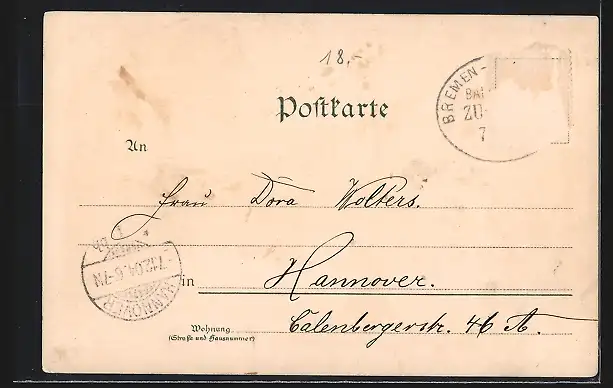 18.-
BREMEN -
BA
ZU
7
Postkarte
An
Frau Dora Wolters.
7.12.04. 6-7N
HANNOVER
in Hannover.
Wohnung
(Straße und Hausnummer)
Calenbergerstr. 46 A.